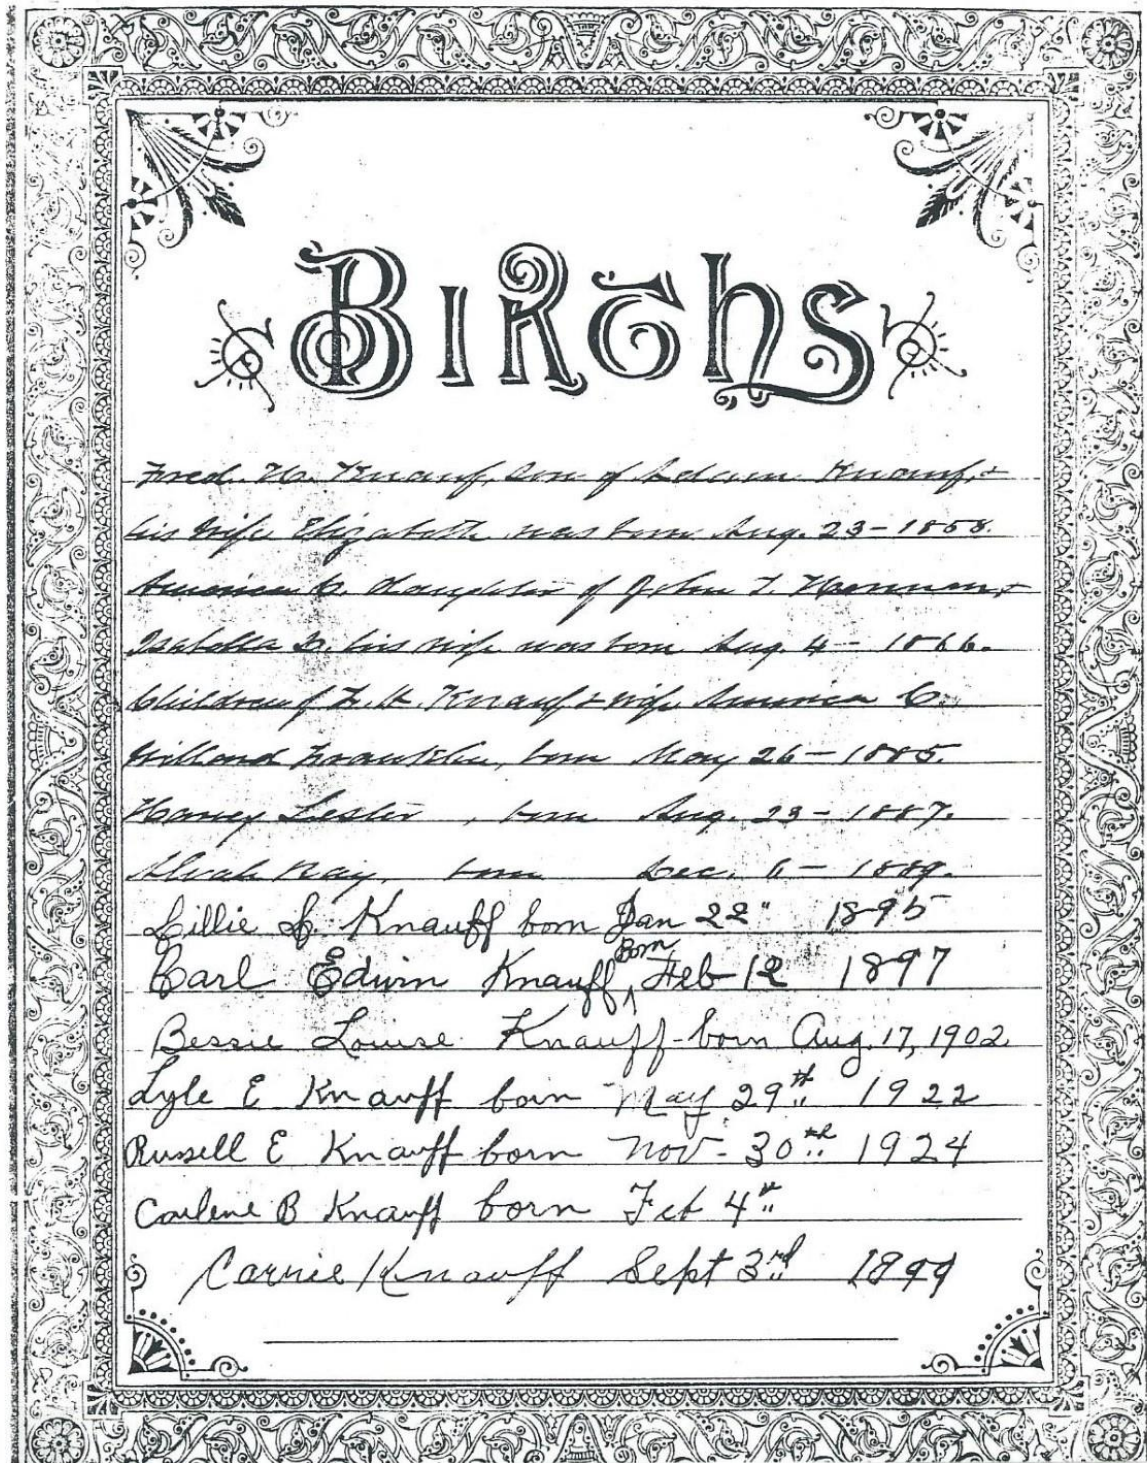 Births
Fred. H. Knauf, son of Adam Knauf, +
his wife Elizabeth was born Aug. 23 - 1858.
America C. daughter of John T. +
Isabella his wife was born Aug. 4 - 1866.
Children of F. H. Knauf + wife America C.
Willard Franklin, born May 26 - 1885.
Harvey Lester , born Aug. 23 - 1887.
Alvah Ray, born Dec. 6 - 1889.
Lillie L. Knauff born Jan 22" 1895
Carl Edwin Knauff Born Feb 12 1897
Bessie Louise Knauff - born Aug. 17, 1902
Lyle E Knauff born May 29th 1922
Russell E Knauff born Nov - 30th 1924
Carlene B Knauff born Feb 4th
Carrie Knauff Sept 3rd 1899